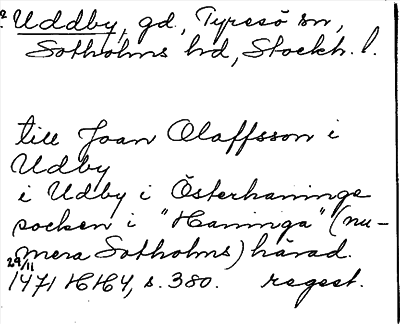 Uddby, gd, Tyresö sn,
Sotholms hd, Stockh. l.
till Joan Olaffsson i
Udby
i Udby i Österhaninge
socken i "Haninga" (nu-
mera Sotholms) härad.
29/11
1471 HH4, s. 380. regest.